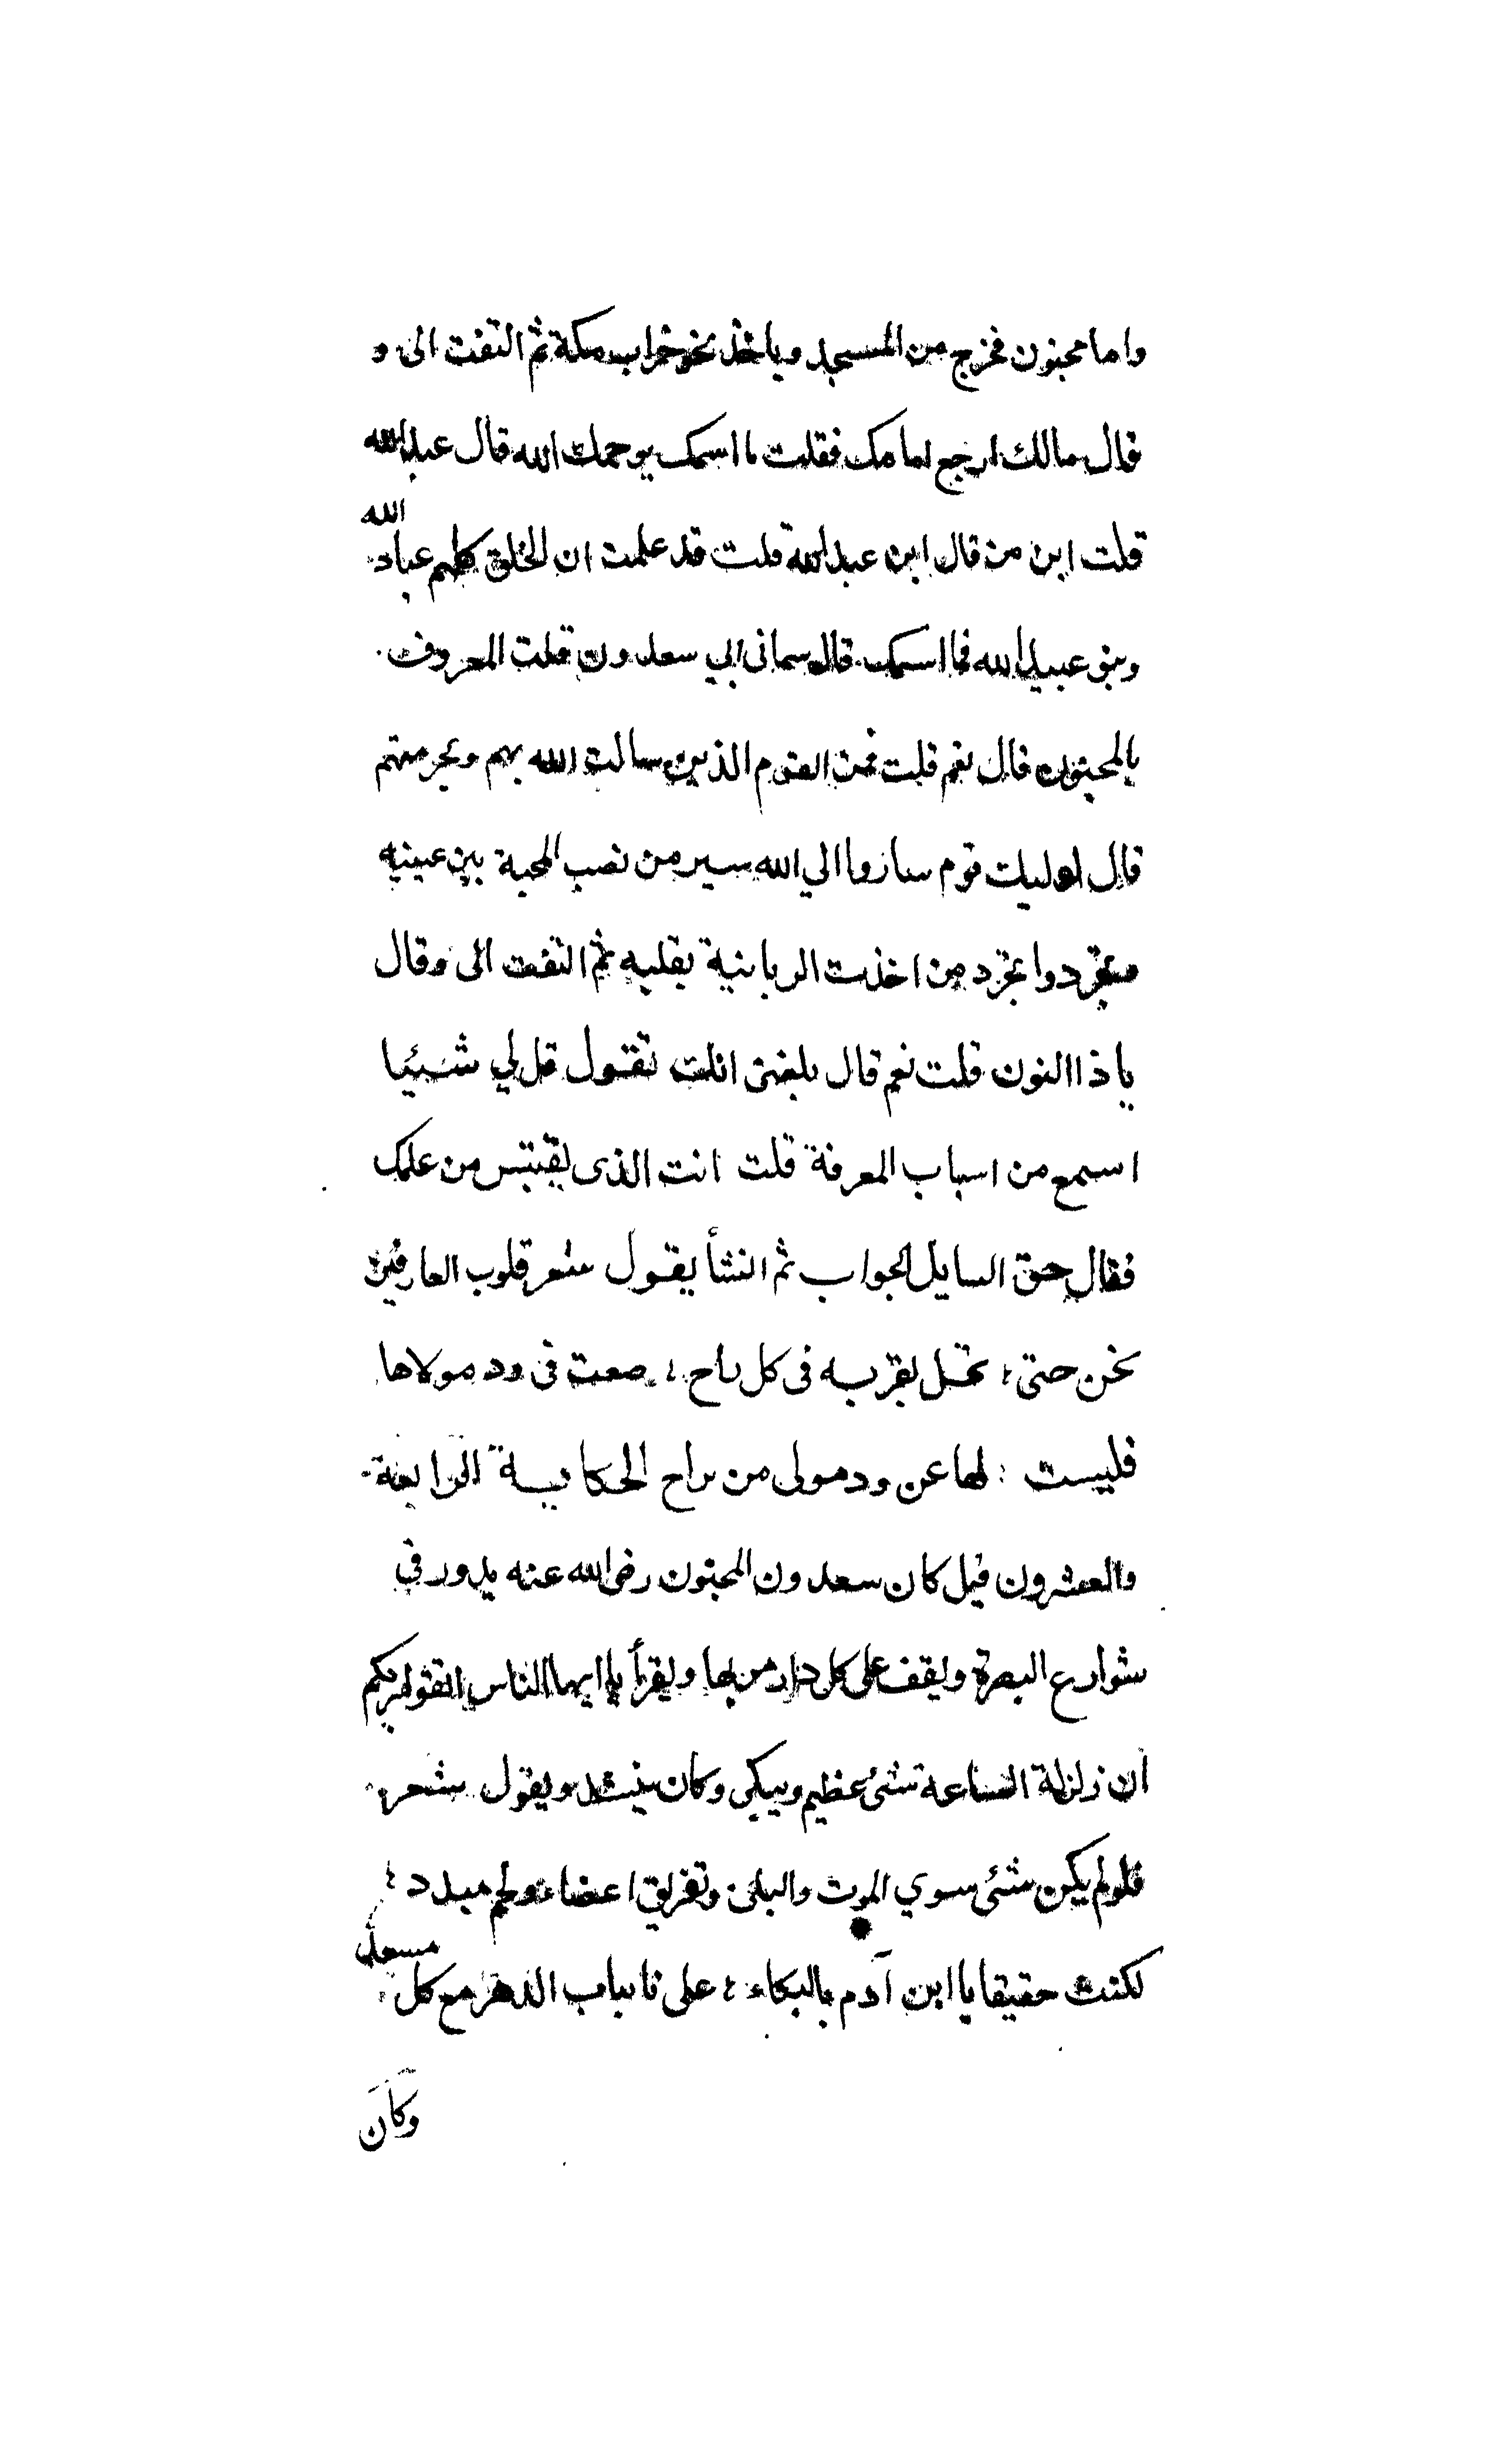 واما مجنون فخرج من المسجد وياخذ نحو خراب مكة ثم التفت الى و
قال مالك ارجع امامك فقلت ما اسمك يرحمك الله قال عبد الله
قلت ابن من قال ابن عبد الله قلت قد علمت ان الخلق كلهم عباد الله
وبنو عبيد الله فما اسمك قال سمانى ابي سعدون قلت المعروف
بالمجنون قال نعم قلت فمن القوم الذين سالت الله بهم وبحرمتهم
قال اوليك قوم ساروا الي الله سير من نصب المحبة بين عينيه
وتجردوا تجرد من اخذت الربانية بقلبه ثم التفت الى وقال
يا ذا النون قلت نعم قال بلغنى انك تقول قل لي شيئا
اسمع من اسباب المعرفة قلت انت الذى يقتبس من علمك
فقال حق السايل الجواب ثم انشأ يقول شعر قلوب العارفين
تحن حتى ؛ تحل بقربه فى كل راح ؛ صفت فى ود مولاها
فليست ؛ لها عن ود مولى من براح الحكاية الرابعة
والعشرون قيل كان سعدون المجنون رضى الله عنه يدور في
شوارع البصرة ويقف على كل دار من بها ويقرأ يا ايها الناس اتقوا ربكم
ان زلزلة الساعة شئ عظيم ويبكي وكان ينشد ويقول شعر
فلو لم يكن شئى سوي الموت والبلى وتفريق اعضاء ولحم مبدد ؛
لكنت حقيقا يا ابن آدم بالبكاء ؛ على نايبات الدهر مع كل مسعد
وكان